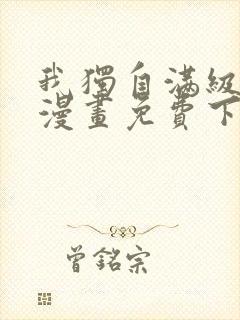 我獨自滿級
漫畫免費下
曾銘宗